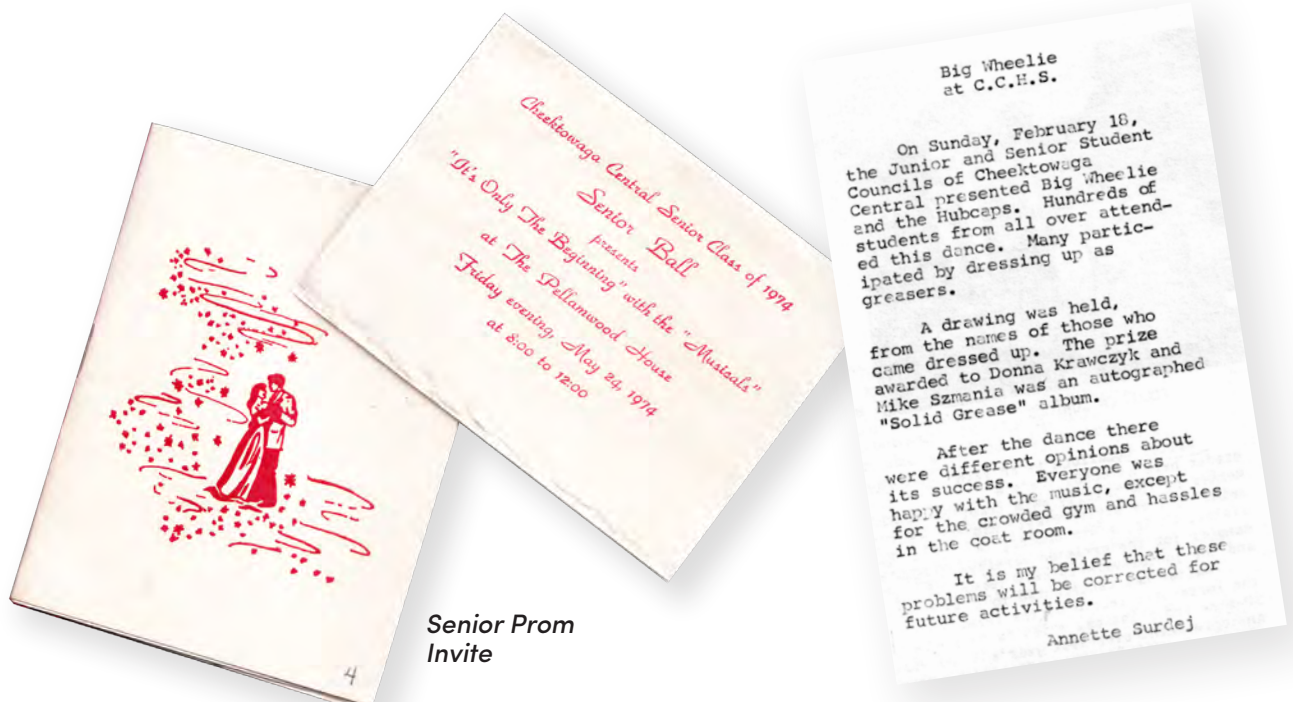 Cheektowaga Central Senior Class of 1974
Senior Ball
presents
"It's Only The Beginning" with the "Musicals"
at The Pellamwood House
Friday evening, May 24, 1974
at 8:00 to 12:00
4
Senior Prom
Invite
Big Wheelie
at C.C.H.S.
On Sunday, February 18,
the Junior and Senior Student
Councils of Cheektowaga
Central presented Big Wheelie
and the Hubcaps. Hundreds of
students from all over attend-
ed this dance. Many partic-
ipated by dressing up as
greasers.
A drawing was held,
from the names of those who
came dressed up. The prize
awarded to Donna Krawczyk and
Mike Szmania was an autographed
"Solid Grease" album.
After the dance there
were different opinions about
its success. Everyone was
happy with the music, except
for the crowded gym and hassles
in the coat room.
It is my belief that these
problems will be corrected for
future activities.
Annette Surdej